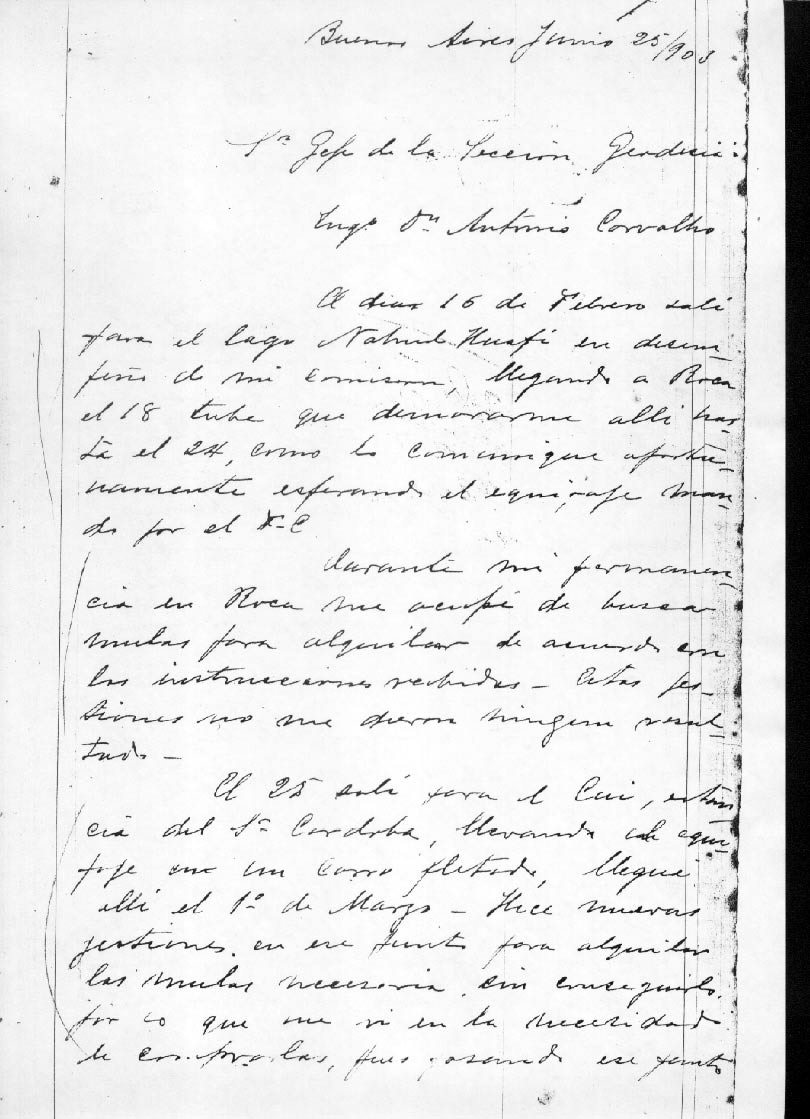 Buenos Aires Junio 25/903
Sr Gefe de la Seccion Geodesia:
Ingo Dn Antonio Corvalho
El dia 16 de Febrero sali
para el lago Nahuel Huapi en desem-
peño de mi comision, llegando a Roca
el 18 tube que demorarme alli has-
ta el 24, como lo comunique oportu-
namente esperando el equipaje man-
do por el F-C
Durante mi permanen-
cia en Roca me ocupé de busca
mulas para alquilar de acuerdo con
las instrucciones recibidas - Estas jes-
tiones no me dieron ningun resul-
tado -
El 25 salí para el Cuy, estan-
cia del Sr Cordoba, llevando el equi-
paje en un carro fletado, llegue
alli el 1o de Marzo - Hice nuevas
jestiones en ese punto para alquilar
las mulas necesaria sin conseguirlo,
por lo que me vi en la necesidad
de comprarlas, pues pasando ese punto